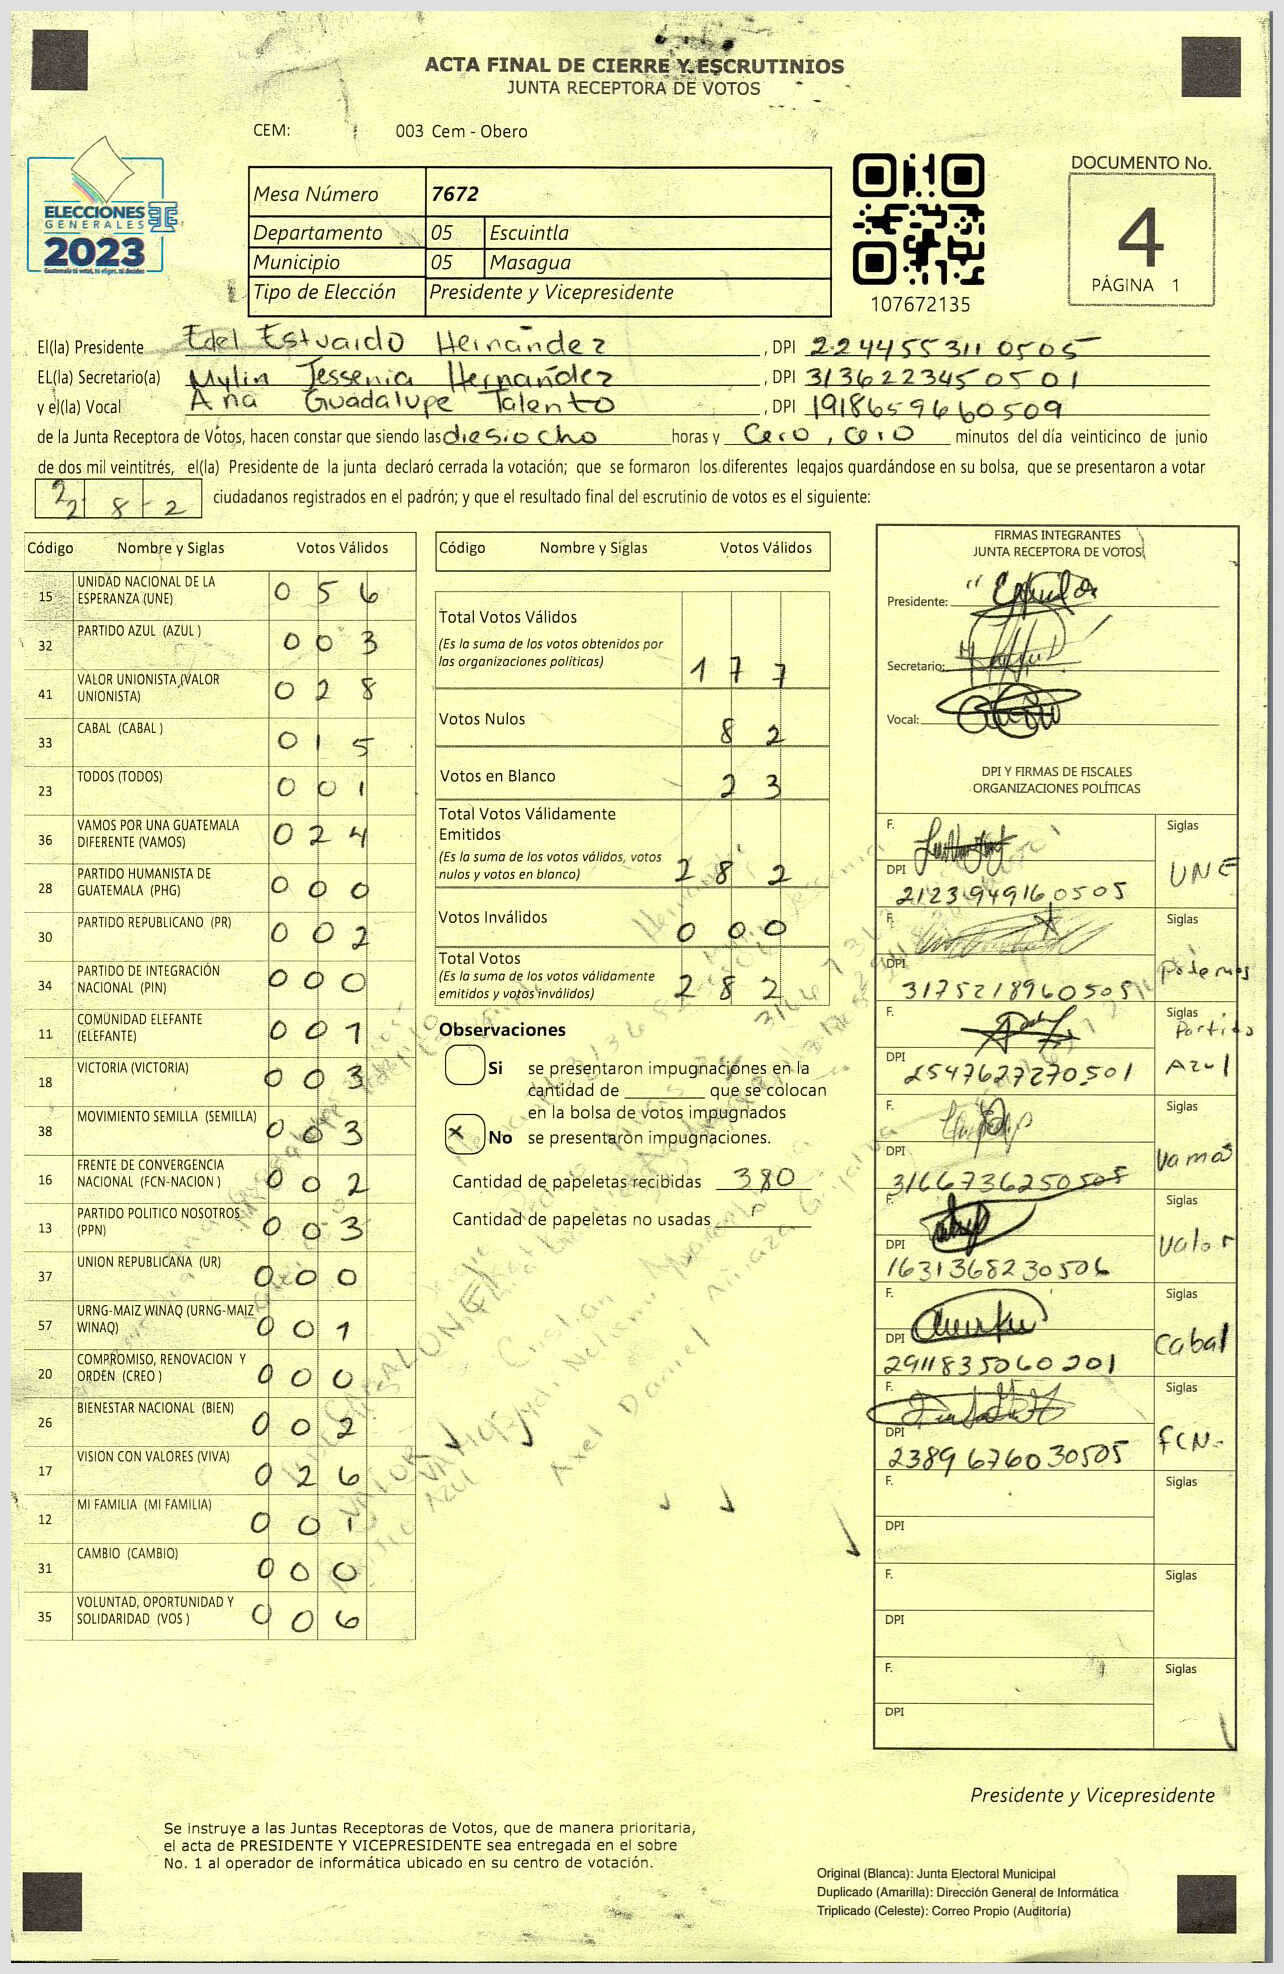 ACTA FINAL DE CIERRE Y ESCRUTINIOS
JUNTA RECEPTORA DE VOTOS
CEM: 003 Cem - Obero
ELECCIONES
GENERALES
2023
Guatemala tú votas, tú eliges, tú decides
Mesa Número 7672
Departamento 05 Escuintla
Municipio 05 Masagua
Tipo de Elección Presidente y Vicepresidente
107672135
DOCUMENTO No.
4
PÁGINA 1
El(la) Presidente Edel Estuardo Hernández , DPI 2244553110505
EL(la) Secretario(a) Mylin Jessenia Hernandez , DPI 3136223450501
y el(la) Vocal Ana Guadalupe Talento , DPI 1918659660509
de la Junta Receptora de Votos, hacen constar que siendo las diesiocho horas y Cero, cero minutos del día veinticinco de junio
de dos mil veintitrés, el(la) Presidente de la junta declaró cerrada la votación; que se formaron los diferentes legajos guardándose en su bolsa, que se presentaron a votar
2 8 2 ciudadanos registrados en el padrón; y que el resultado final del escrutinio de votos es el siguiente:
Código Nombre y Siglas Votos Válidos
15 UNIDAD NACIONAL DE LA
ESPERANZA (UNE) 0 5 6
32 PARTIDO AZUL (AZUL ) 0 0 3
41 VALOR UNIONISTA (VALOR
UNIONISTA) 0 2 8
33 CABAL (CABAL ) 0 1 5
23 TODOS (TODOS) 0 0 1
36 VAMOS POR UNA GUATEMALA
DIFERENTE (VAMOS) 0 2 4
28 PARTIDO HUMANISTA DE
GUATEMALA (PHG) 0 0 0
30 PARTIDO REPUBLICANO (PR) 0 0 2
34 PARTIDO DE INTEGRACIÓN
NACIONAL (PIN) 0 0 0
11 COMUNIDAD ELEFANTE
(ELEFANTE) 0 0 1
18 VICTORIA (VICTORIA) 0 0 3
38 MOVIMIENTO SEMILLA (SEMILLA) 0 0 3
16 FRENTE DE CONVERGENCIA
NACIONAL (FCN-NACION ) 0 0 2
13 PARTIDO POLITICO NOSOTROS
(PPN) 0 0 3
37 UNION REPUBLICANA (UR) 0 0 0
57 URNG-MAIZ WINAQ (URNG-MAIZ
WINAQ) 0 0 1
20 COMPROMISO, RENOVACION Y
ORDEN (CREO ) 0 0 0
26 BIENESTAR NACIONAL (BIEN) 0 0 2
17 VISION CON VALORES (VIVA) 0 2 6
12 MI FAMILIA (MI FAMILIA) 0 0 1
31 CAMBIO (CAMBIO) 0 0 0
35 VOLUNTAD, OPORTUNIDAD Y
SOLIDARIDAD (VOS ) 0 0 6
Código Nombre y Siglas Votos Válidos
Total Votos Válidos
(Es la suma de los votos obtenidos por
las organizaciones políticas) 1 7 7
Votos Nulos 8 2
Votos en Blanco 2 3
Total Votos Válidamente
Emitidos
(Es la suma de los votos válidos, votos
nulos y votos en blanco) 2 8 2
Votos Inválidos 0 0 0
Total Votos
(Es la suma de los votos válidamente
emitidos y votos inválidos) 2 8 2
Observaciones
Si se presentaron impugnaciones en la
cantidad de ________ que se colocan
en la bolsa de votos impugnados
x No se presentaron impugnaciones.
Cantidad de papeletas recibidas 380
Cantidad de papeletas no usadas
Cristian
Axel Daniel
VALOR
AZUL
FIRMAS INTEGRANTES
JUNTA RECEPTORA DE VOTOS
Presidente:
Secretario:
Vocal:
DPI Y FIRMAS DE FISCALES
ORGANIZACIONES POLÍTICAS
F. Siglas
DPI UNE
2123949160505
F. Siglas
DPI Podemos
3175218960505
F. Siglas
Partido
DPI Azul
2547627270501
F. Siglas
DPI Vamos
3166736250505
F. Siglas
DPI Valor
1631368230506
F. Siglas
DPI Cabal
2911835060201
F. Siglas
DPI FCN
2389676030505
F. Siglas
DPI
F. Siglas
DPI
F. Siglas
DPI
Presidente y Vicepresidente
Se instruye a las Juntas Receptoras de Votos, que de manera prioritaria,
el acta de PRESIDENTE Y VICEPRESIDENTE sea entregada en el sobre
No. 1 al operador de informática ubicado en su centro de votación.
Original (Blanca): Junta Electoral Municipal
Duplicado (Amarilla): Dirección General de Informática
Triplicado (Celeste): Correo Propio (Auditoría)